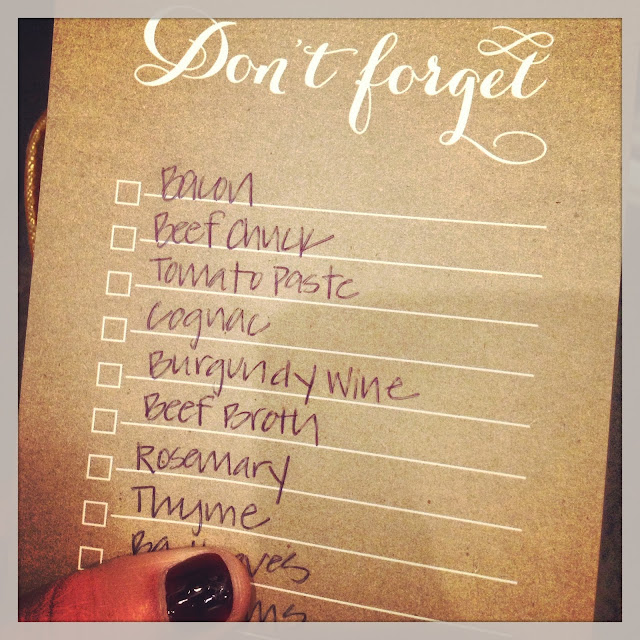 Don't forget
Bacon
Beef Chuck
Tomato Paste
Cognac
Burgundy Wine
Beef Broth
Rosemary
Thyme